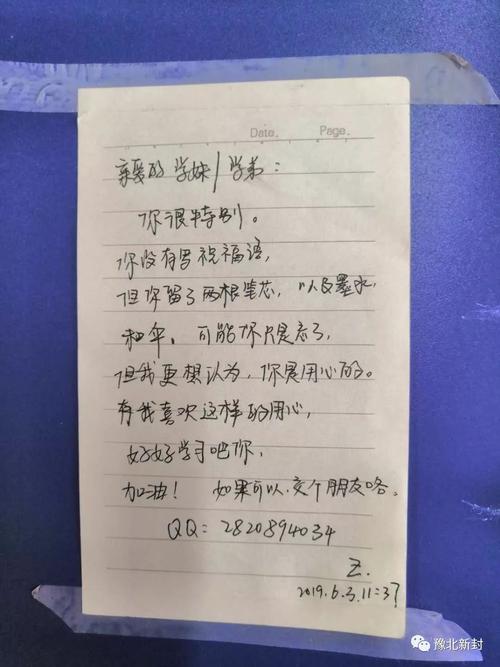 Date. Page.
亲爱的学妹/学弟：
你很特别。
你没有写祝福语,
但你留了两根笔芯，以及墨水,
和伞。可能你只是忘了,
但我更想认为，你是用心的。
有我喜欢这样的用心,
好好学习吧你,
加油！如果可以.交个朋友咯。
QQ：2820894034
Z.
2019.6.3.11:37
豫北新封